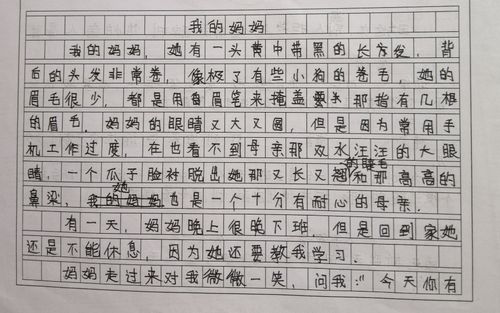 我的妈妈
我的妈妈，她有一头黄中带黑的长方发，背
后的头发非常卷，像极了有些小狗的卷毛，她的
眉毛很少，都是用眉笔来掩盖那指有几根
的眉毛．妈妈的眼睛又大又圆，但是因为常用手
机工作过度，在也看不到母亲那双水汪汪的大眼
睛，一个瓜子脸衬脱出她那又长又翘的睫毛和那高高的
鼻梁，她也是一个十分有耐心的母亲．
有一天，妈妈晚上很晚下班，但是回到家她
还是不能休息，因为她还要教我学习．
妈妈走过来对我微微一笑，问我："今天你有